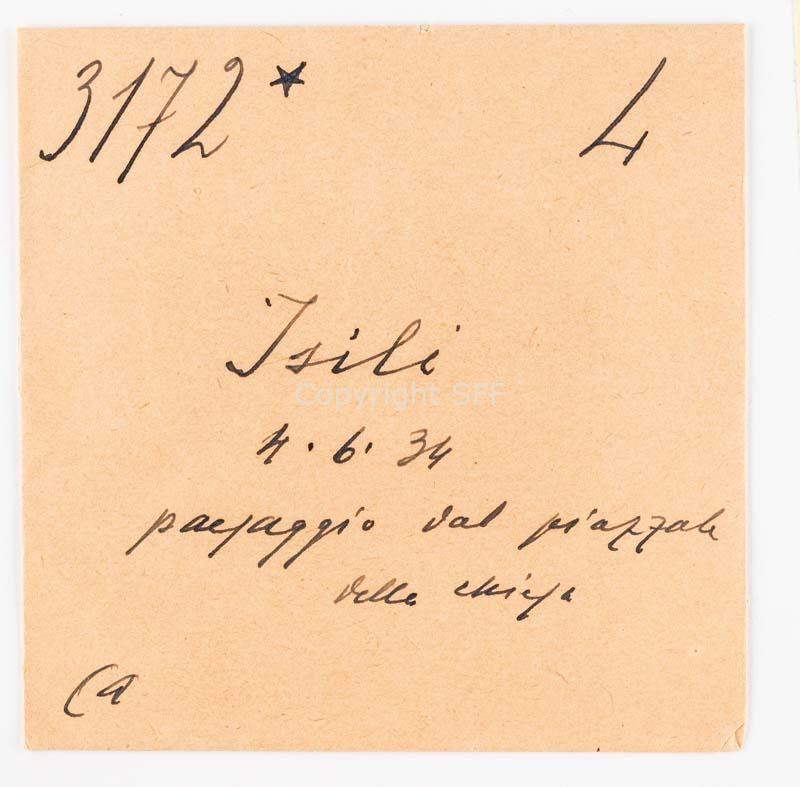 3172* 4
Isili
Copyright SFF
4.6.34
paesaggio dal piazzale
della chiesa
Ca